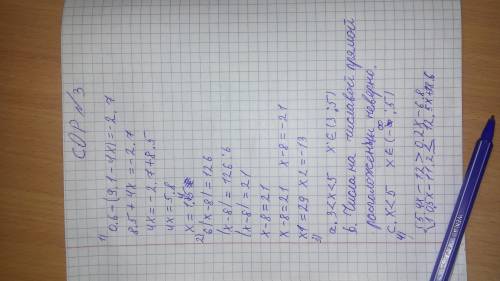 СОР №3
1) 0.6-(9,1-4x)=-2,7
8.5+4x=-2.7
4x=-2.7+8.5
4x=5.8
2) 6|x-8|=126
|x-8|=126:6
|x-8|=21
x-8=21
x-8=21 x-8=-21
x1=29 x2=-13
3)
a. 3<x<5 x∈(3;5)
b. Числа на числовой прямой
расположены неверно.
c. x<5 x∈(-∞;5)
4)